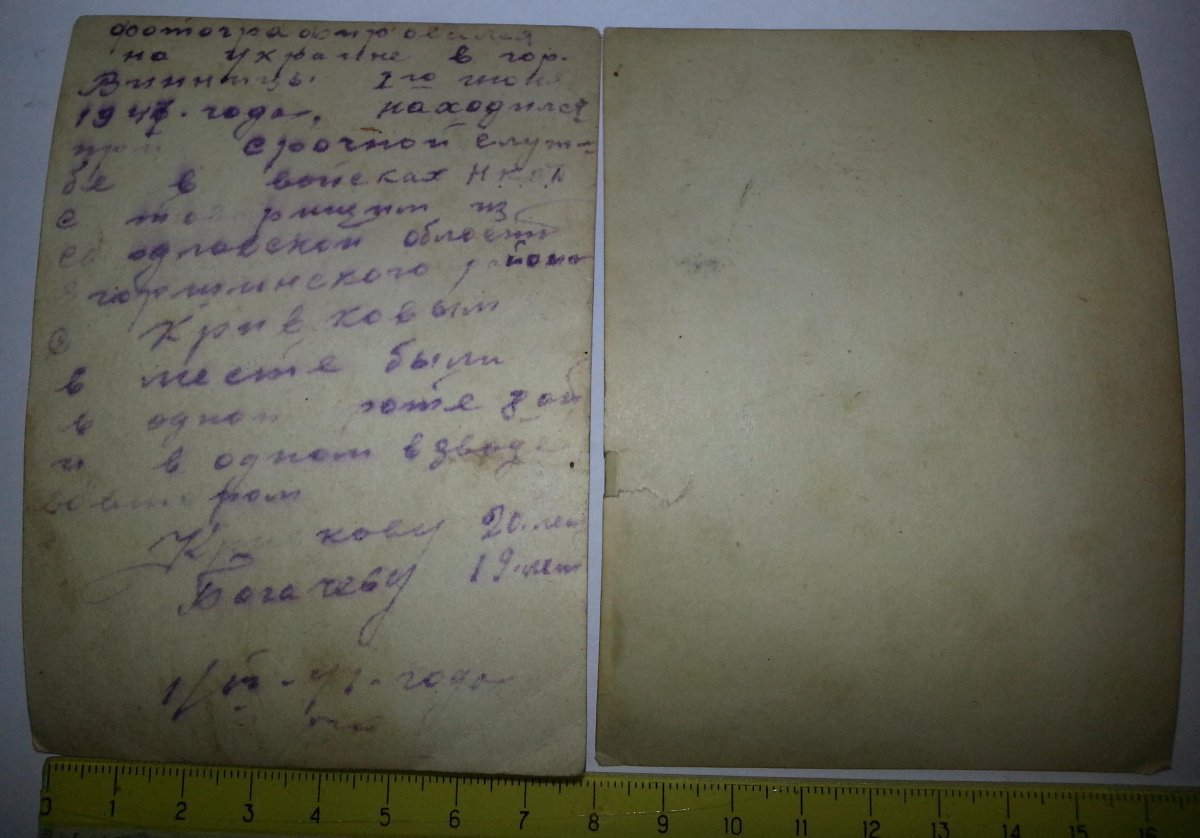 фотографировался
на украине в гор.
Винницы 1го июня
1947. года, находился
при срочной служ-
бе в войсках
с товарищим из
свердловской области
Егоршинского района
с Кривковым
в месте были
в одной роте
и в одном взводе
во втором
кову 20. лет
Богачеву 19. лет
года
0 1 2 3 4 5 6 7 8 9 10 11 12 13 14 15 16